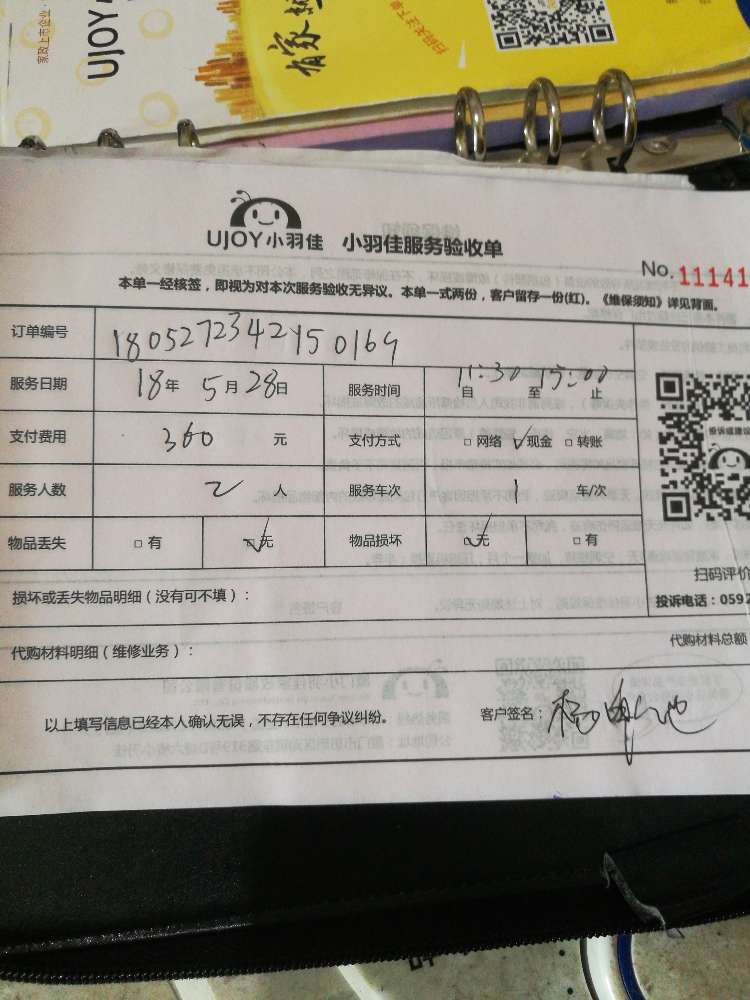 家政上市企业
UJOY小
有家就
扫码关注下单
UJOY小羽佳 小羽佳服务验收单
No.11141
本单一经核签，即视为对本次服务验收无异议。本单一式两份，客户留存一份(红)。《维保须知》详见背面。
订单编号
服务日期 18年 5月28日 服务时间 11:30 自 至 15:00 止
支付费用 360 元 支付方式 □网络 ✓现金 □转账
服务人数 2 人 服务车次 1 车/次
物品丢失 □有 ☑无 物品损坏 ☑无 □有
投诉或建议
损坏或丢失物品明细（没有可不填）：
扫码评价
投诉电话：0592
代购材料明细（维修业务）：
代购材料总额
以上填写信息已经本人确认无误，不存在任何争议纠纷。
客户签名：